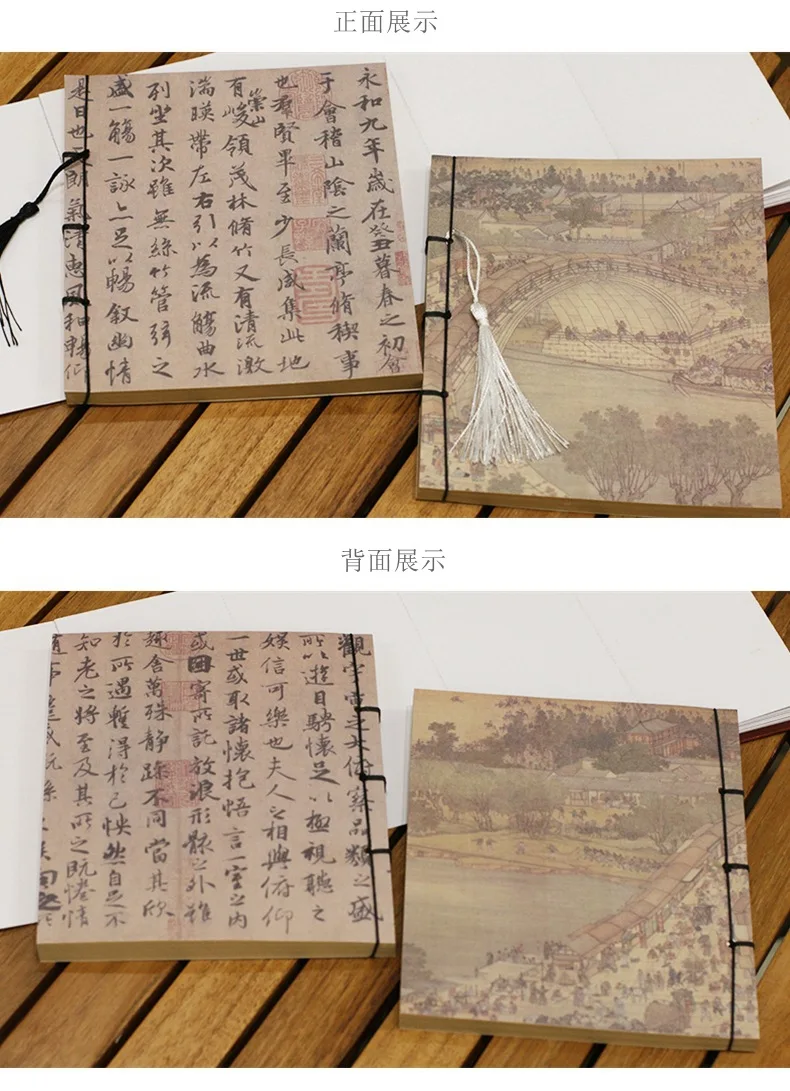 正面展示
永和九年歲在癸丑暮春之初會
于會稽山陰之蘭亭脩稧事
也羣賢畢至少長咸集此地
有崇山峻領茂林脩竹又有清流激
湍暎帶左右引以為流觴曲水
列坐其次雖無絲竹管弦之
盛一觴一詠亦足以暢叙幽情
是日也朗氣清惠風和暢仰
背面展示
觀宇宙之大俯察品類之盛
所以遊目騁懷足以極視聽之
娛信可樂也夫人之相與俯仰
一世或取諸懷抱悟言一室之內
或因寄所託放浪形骸之外雖
趣舍萬殊靜躁不同當其欣
於所遇暫得於己怏然自足不
知老之將至及其所之既惓情
隨事遷感慨係之矣向之